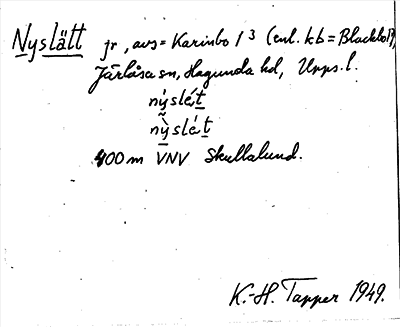 Nyslätt jr, avs = Karinbo 1³ (enl. kb = Blackbol?),
Järlåsa sn, Hagunda hd, Upps. l.
nýslét
nỹ̀slét
400 m VNV Skullalund.
K.-H. Tapper 1949.